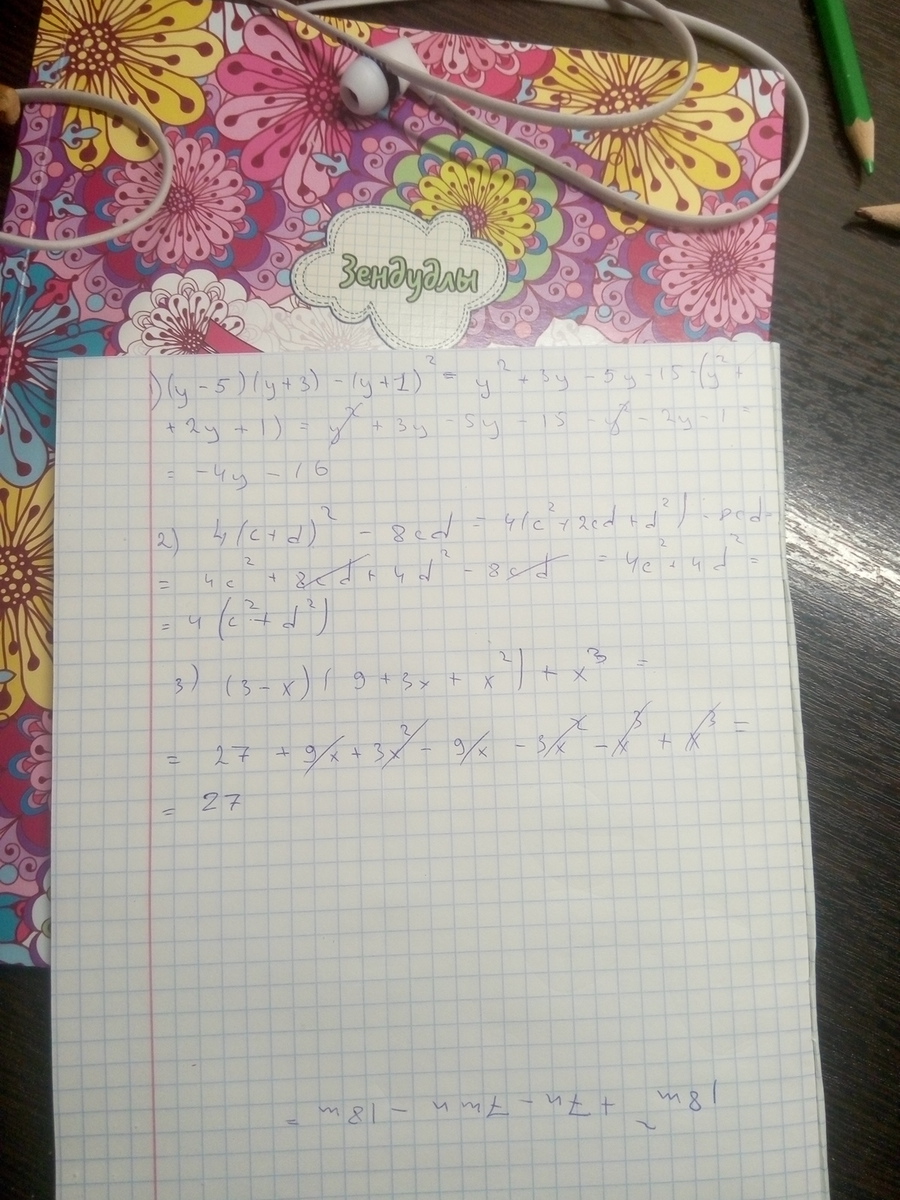 Зендудлы
1) (y - 5)(y + 3) - (y + 1)² = y² + 3y - 5y - 15 - (y² +
+ 2y + 1) = y² + 3y - 5y - 15 - y² - 2y - 1 =
= -4y - 16
2) 4(c + d)² - 8cd = 4(c² + 2cd + d²) - 8cd =
= 4c² + 8cd + 4d² - 8cd = 4c² + 4d² =
= 4(c² + d²)
3) (3 - x)(9 + 3x + x²) + x³ =
= 27 + 9x + 3x² - 9x - 3x² - x³ + x³ =
= 27
18m² + 7n - 7mn - 18m =